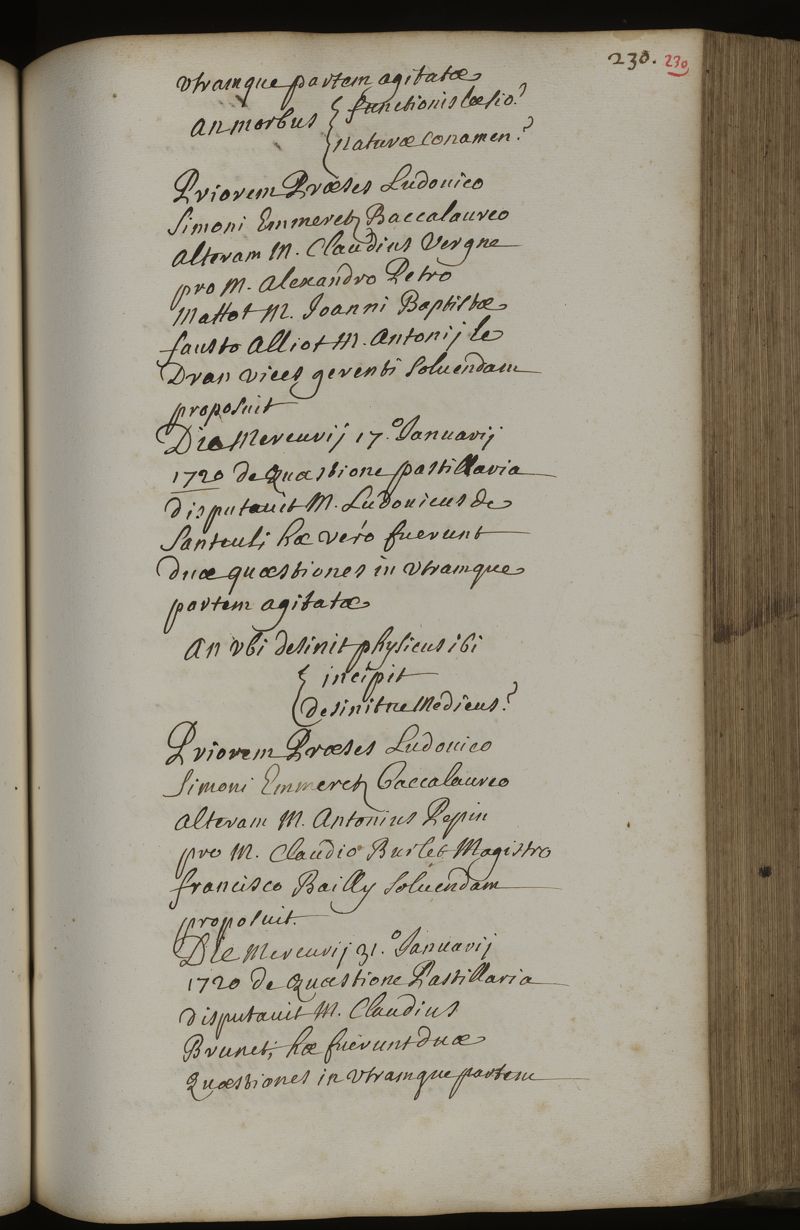 230. 230
vtramque partem agitatæ
An morbus { functionis læsio?
naturæ conamen?
Priorem Præses Ludouico
Simoni Emmeretz Baccalaureo
alteram M. Claudius Vergne
pro M. Alexandro Petro
Mattot M. Joanni Baptistæ
fausto Alliot M. Antonij le
Dran vices gerenti soluendam
proposuit
Die Mercurij 17.º Januarij
1720 de Quæstione pastillaria
disputauit M. Ludouicus de
Santeuli hæ véro fuerunt
duæ quæstiones in vtramque
partem agitatæ
An vbi desinit physicus ibi
{ incipit
desinitue Medicus?
Priorem Præses Ludouico
Simoni Emmeretz baccalaureo
alteram M. Antonius Pepin
pro M. Claudio Burlet Magistro
francisco Bailly soluendam
proposuit.
Die Mercurij 31.º Januarij
1720 de Quæstione Pastillaria
disputauit M. Claudius
Brunet; hæ fuerunt duæ
Quæstiones in vtramque partem